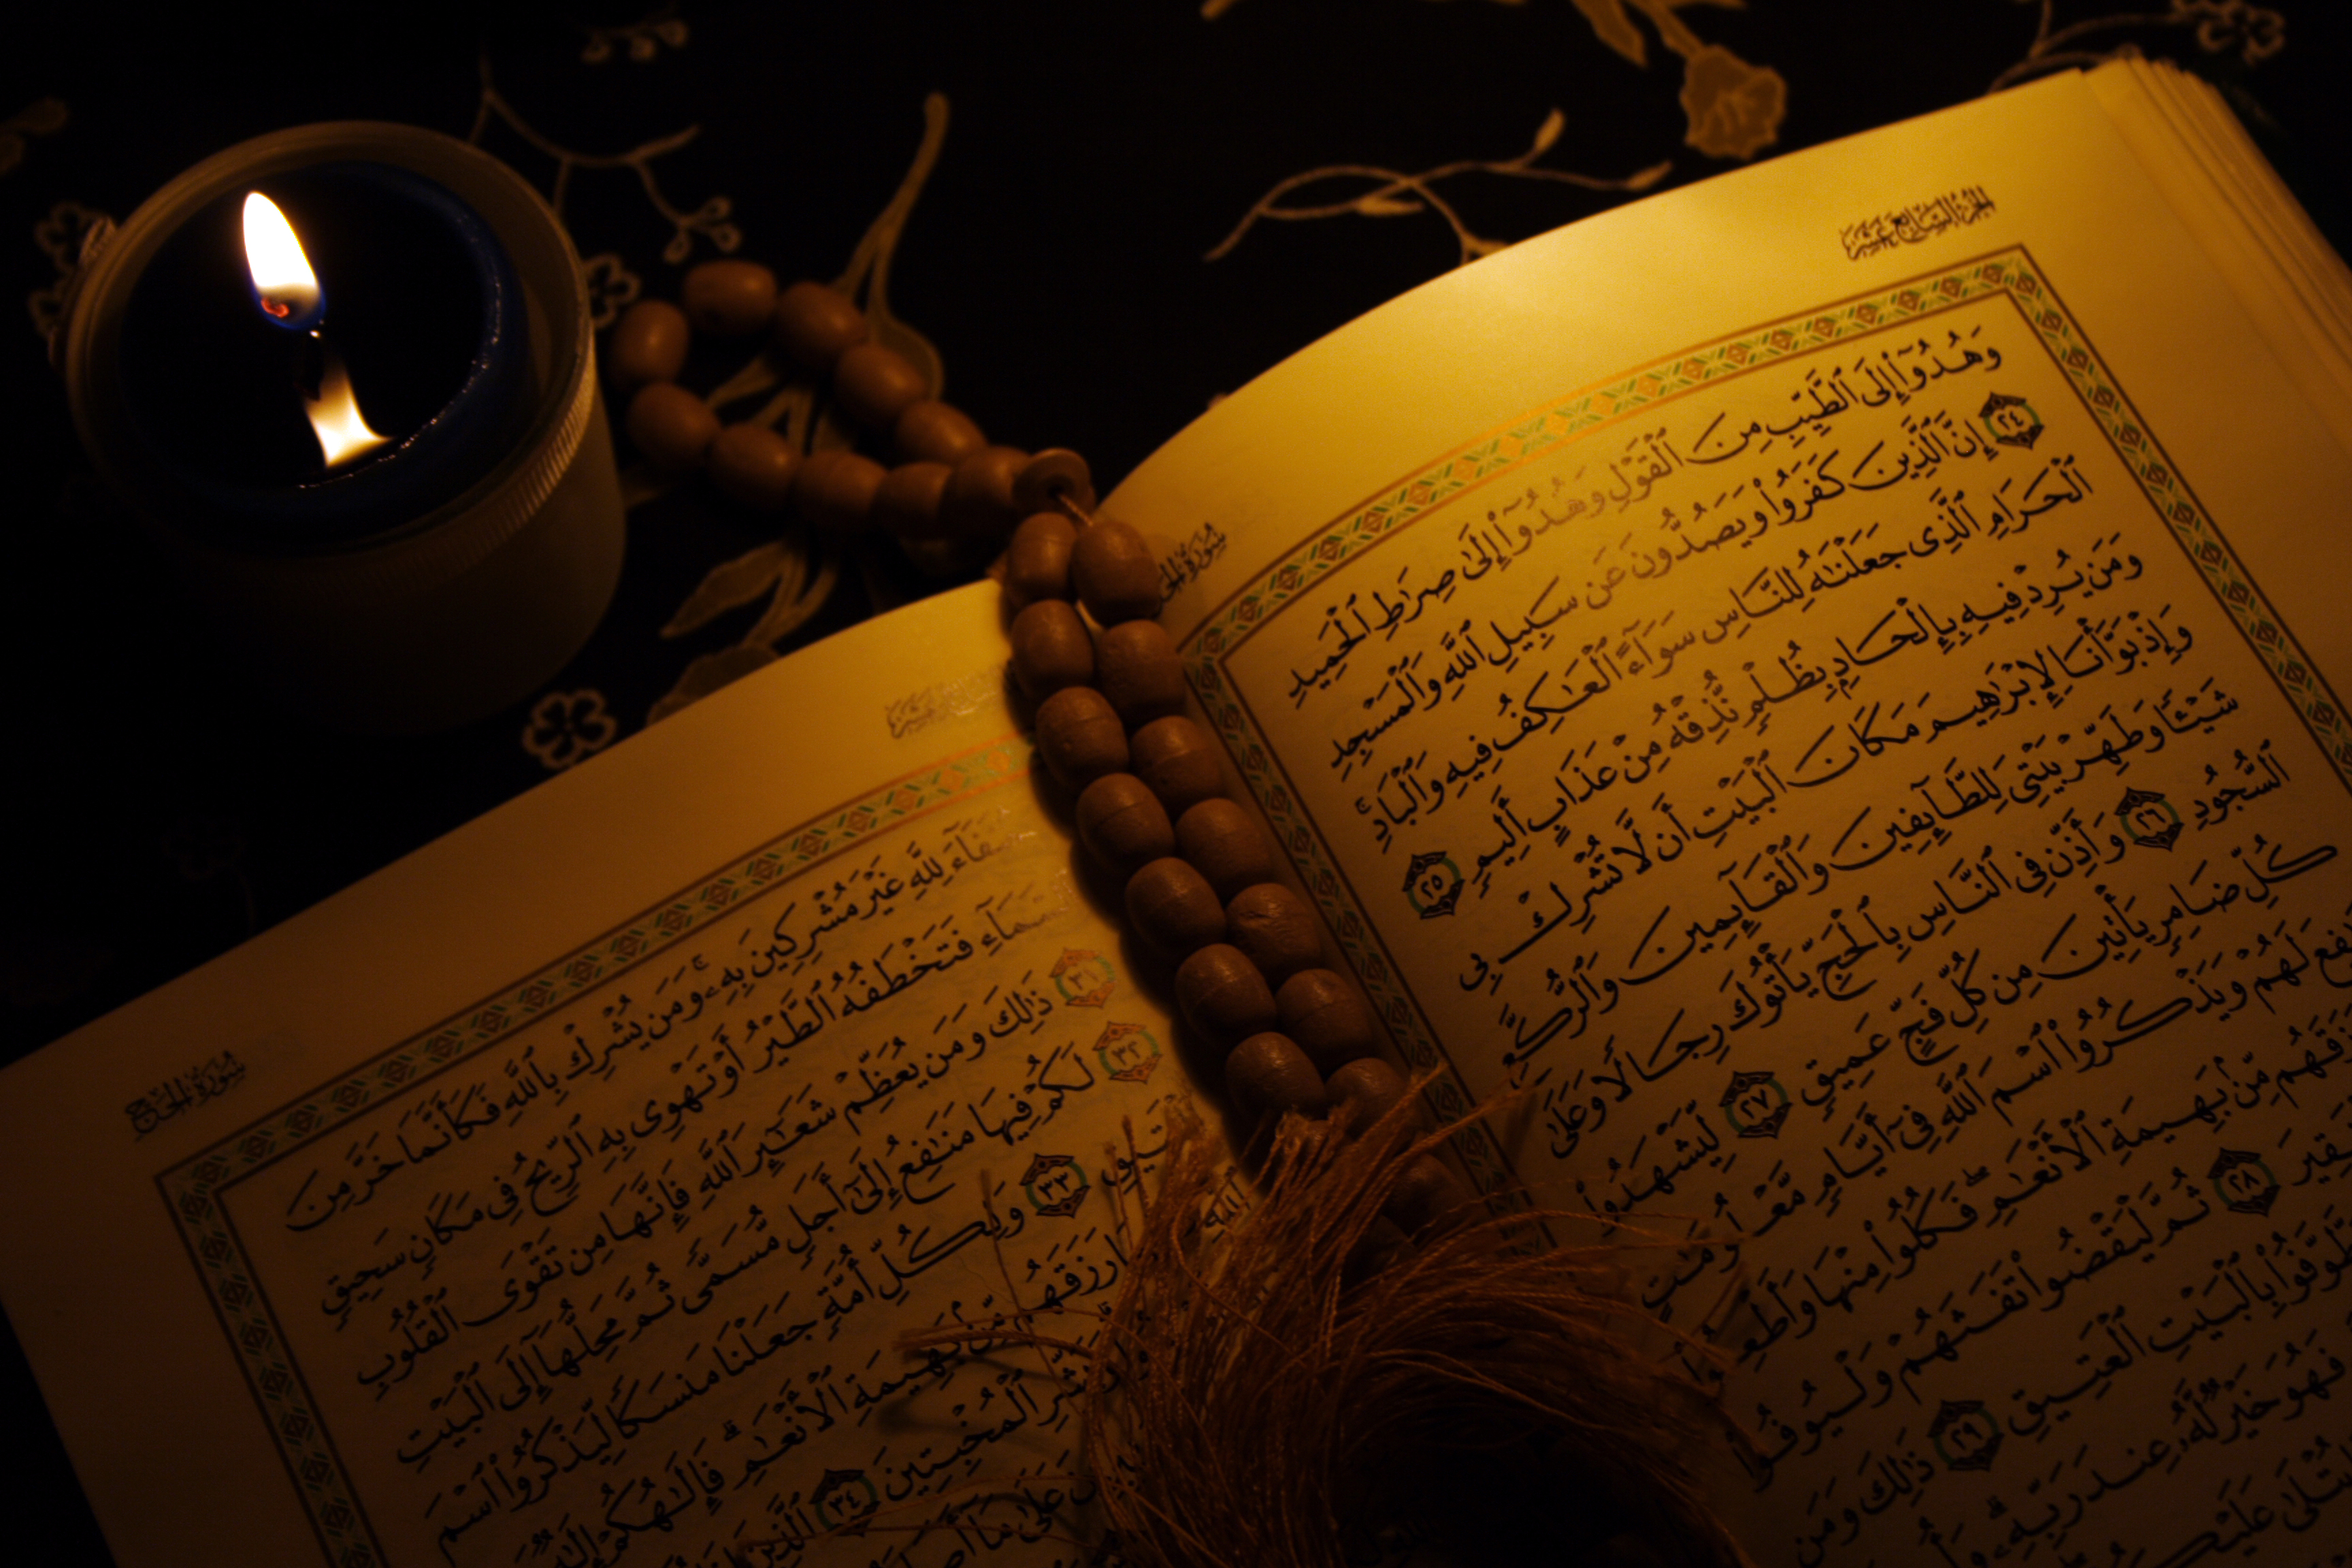 الجزء السابع عشر
سورة الحج
وَهُدُوٓا۟ إِلَى ٱلطَّيِّبِ مِنَ ٱلْقَوْلِ وَهُدُوٓا۟ إِلَىٰ صِرَٰطِ ٱلْحَمِيدِ
٢٤ إِنَّ ٱلَّذِينَ كَفَرُوا۟ وَيَصُدُّونَ عَن سَبِيلِ ٱللَّهِ وَٱلْمَسْجِدِ
ٱلْحَرَامِ ٱلَّذِى جَعَلْنَٰهُ لِلنَّاسِ سَوَآءً ٱلْعَٰكِفُ فِيهِ وَٱلْبَادِ ۚ
وَمَن يُرِدْ فِيهِ بِإِلْحَادٍۭ بِظُلْمٍ نُّذِقْهُ مِنْ عَذَابٍ أَلِيمٍ ٢٥
وَإِذْ بَوَّأْنَا لِإِبْرَٰهِيمَ مَكَانَ ٱلْبَيْتِ أَن لَّا تُشْرِكْ بِى
شَيْـًٔا وَطَهِّرْ بَيْتِىَ لِلطَّآئِفِينَ وَٱلْقَآئِمِينَ وَٱلرُّكَّعِ
ٱلسُّجُودِ ٢٦ وَأَذِّن فِى ٱلنَّاسِ بِٱلْحَجِّ يَأْتُوكَ رِجَالًا وَعَلَىٰ
كُلِّ ضَامِرٍ يَأْتِينَ مِن كُلِّ فَجٍّ عَمِيقٍ ٢٧ لِّيَشْهَدُوا۟
لَهُمْ وَيَذْكُرُوا۟ ٱسْمَ ٱللَّهِ فِىٓ أَيَّامٍ مَّعْلُومَٰتٍ
مِّنۢ بَهِيمَةِ ٱلْأَنْعَٰمِ ۖ فَكُلُوا۟ مِنْهَا وَأَطْعِمُوا۟
٢٨ ثُمَّ لْيَقْضُوا۟ تَفَثَهُمْ وَلْيُوفُوا۟
بِٱلْبَيْتِ ٱلْعَتِيقِ ٢٩ ذَٰلِكَ وَمَن
فَهُوَ خَيْرٌ لَّهُۥ عِندَ رَبِّهِۦ ۗ
سورة الحج
لِلَّهِ غَيْرَ مُشْرِكِينَ بِهِۦ ۚ وَمَن يُشْرِكْ بِٱللَّهِ فَكَأَنَّمَا خَرَّ مِنَ
فَتَخْطَفُهُ ٱلطَّيْرُ أَوْ تَهْوِى بِهِ ٱلرِّيحُ فِى مَكَانٍ سَحِيقٍ
٣١ ذَٰلِكَ وَمَن يُعَظِّمْ شَعَٰٓئِرَ ٱللَّهِ فَإِنَّهَا مِن تَقْوَى ٱلْقُلُوبِ
٣٢ لَكُمْ فِيهَا مَنَٰفِعُ إِلَىٰٓ أَجَلٍ مُّسَمًّى ثُمَّ مَحِلُّهَآ إِلَى ٱلْبَيْتِ
٣٣ وَلِكُلِّ أُمَّةٍ جَعَلْنَا مَنسَكًا لِّيَذْكُرُوا۟ ٱسْمَ
ٱللَّهِ رَزَقَهُم مِّنۢ بَهِيمَةِ ٱلْأَنْعَٰمِ ۗ فَإِلَٰهُكُمْ
ٱلْمُخْبِتِينَ ٣٤ ٱلَّذِينَ
عَلَىٰ مَآ